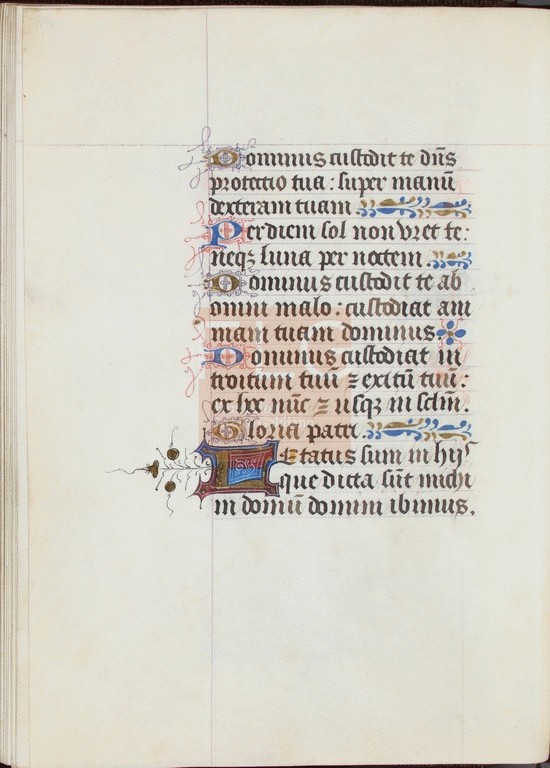 Dominus custodit te dñs
protectio tua : super manũ
dexteram tuam
Per diem sol non vret te :
neqꝫ luna per noctem .
Dominus custodit te ab
omni malo : custodiat ani
mam tuam dominus
Dominus custodiat in
troitum tuũ ⁊ exitũ tuũ :
ex hoc nũc ⁊ usqꝫ in sclm̃ .
Gloria patri .
Letatus sum in hijs
que dicta sũt michi
in domũ domini ibimus .